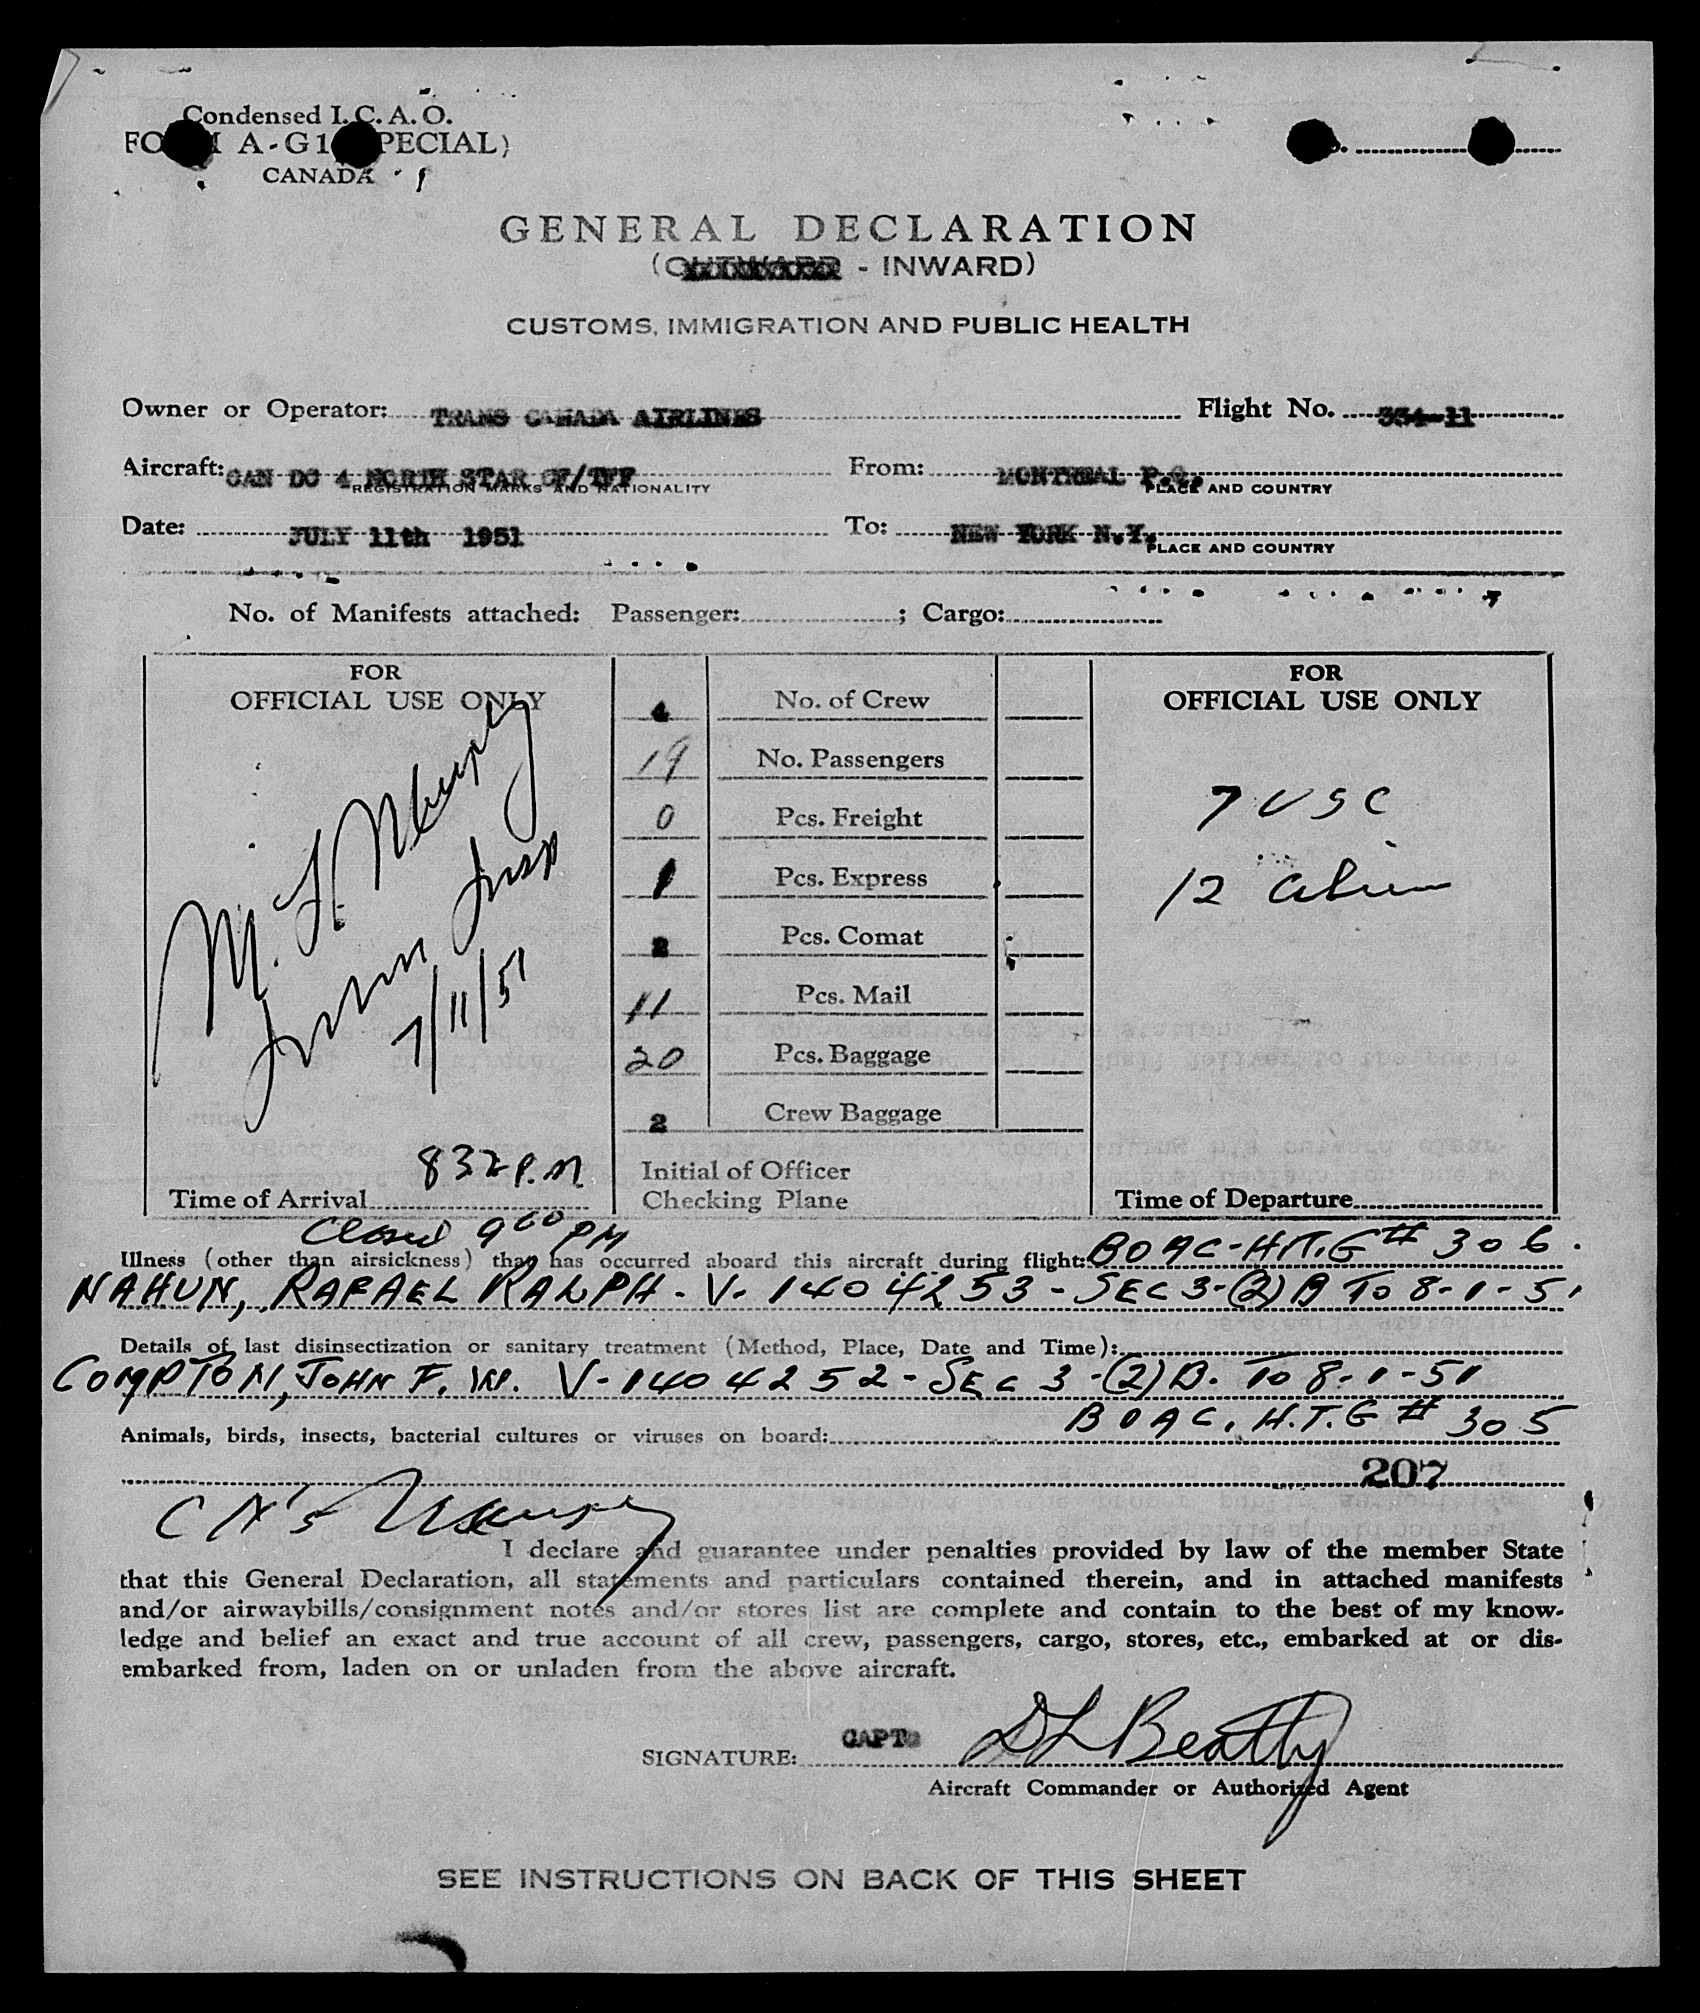 Condensed I.C.A.O.
FORM A-G1 (SPECIAL)
CANADA
GENERAL DECLARATION
(OUTWARD - INWARD)
CUSTOMS, IMMIGRATION AND PUBLIC HEALTH
Owner or Operator: TRANS CANADA AIRLINES Flight No. 334-11
Aircraft: CAN DC 4 NORTH STAR CF/TFF From: MONTREAL P.Q.
REGISTRATION MARKS AND NATIONALITY PLACE AND COUNTRY
Date: JULY 11th 1951 To: NEW YORK N.Y.
PLACE AND COUNTRY
No. of Manifests attached: Passenger: ; Cargo:
FOR
OFFICIAL USE ONLY
M. F. Murphy
Immn Insp
7/11/51
832 P.M.
Time of Arrival
4 No. of Crew
19 No. Passengers
0 Pcs. Freight
1 Pcs. Express
2 Pcs. Comat
11 Pcs. Mail
20 Pcs. Baggage
2 Crew Baggage
Initial of Officer
Checking Plane
FOR
OFFICIAL USE ONLY
7 USC
12 Alien
Time of Departure
Closed 9 00 PM
Illness (other than airsickness) that has occurred aboard this aircraft during flight: BOAC-H.T.G # 306.
NAHUN, RAFAEL RALPH - V-1404253 - SEC 3-(2) B TO 8-1-51
Details of last disinsectization or sanitary treatment (Method, Place, Date and Time):
COMPTON, JOHN F. W. V-1404252 - SEC 3-(2) B. TO 8-1-51
BOAC, H.T.G # 305
Animals, birds, insects, bacterial cultures or viruses on board:
207
I declare and guarantee under penalties provided by law of the member State
that this General Declaration, all statements and particulars contained therein, and in attached manifests
and/or airwaybills/consignment notes and/or stores list are complete and contain to the best of my know-
ledge and belief an exact and true account of all crew, passengers, cargo, stores, etc., embarked at or dis-
embarked from, laden on or unladen from the above aircraft.
SIGNATURE: CAPT. D L Beatty
Aircraft Commander or Authorized Agent
SEE INSTRUCTIONS ON BACK OF THIS SHEET